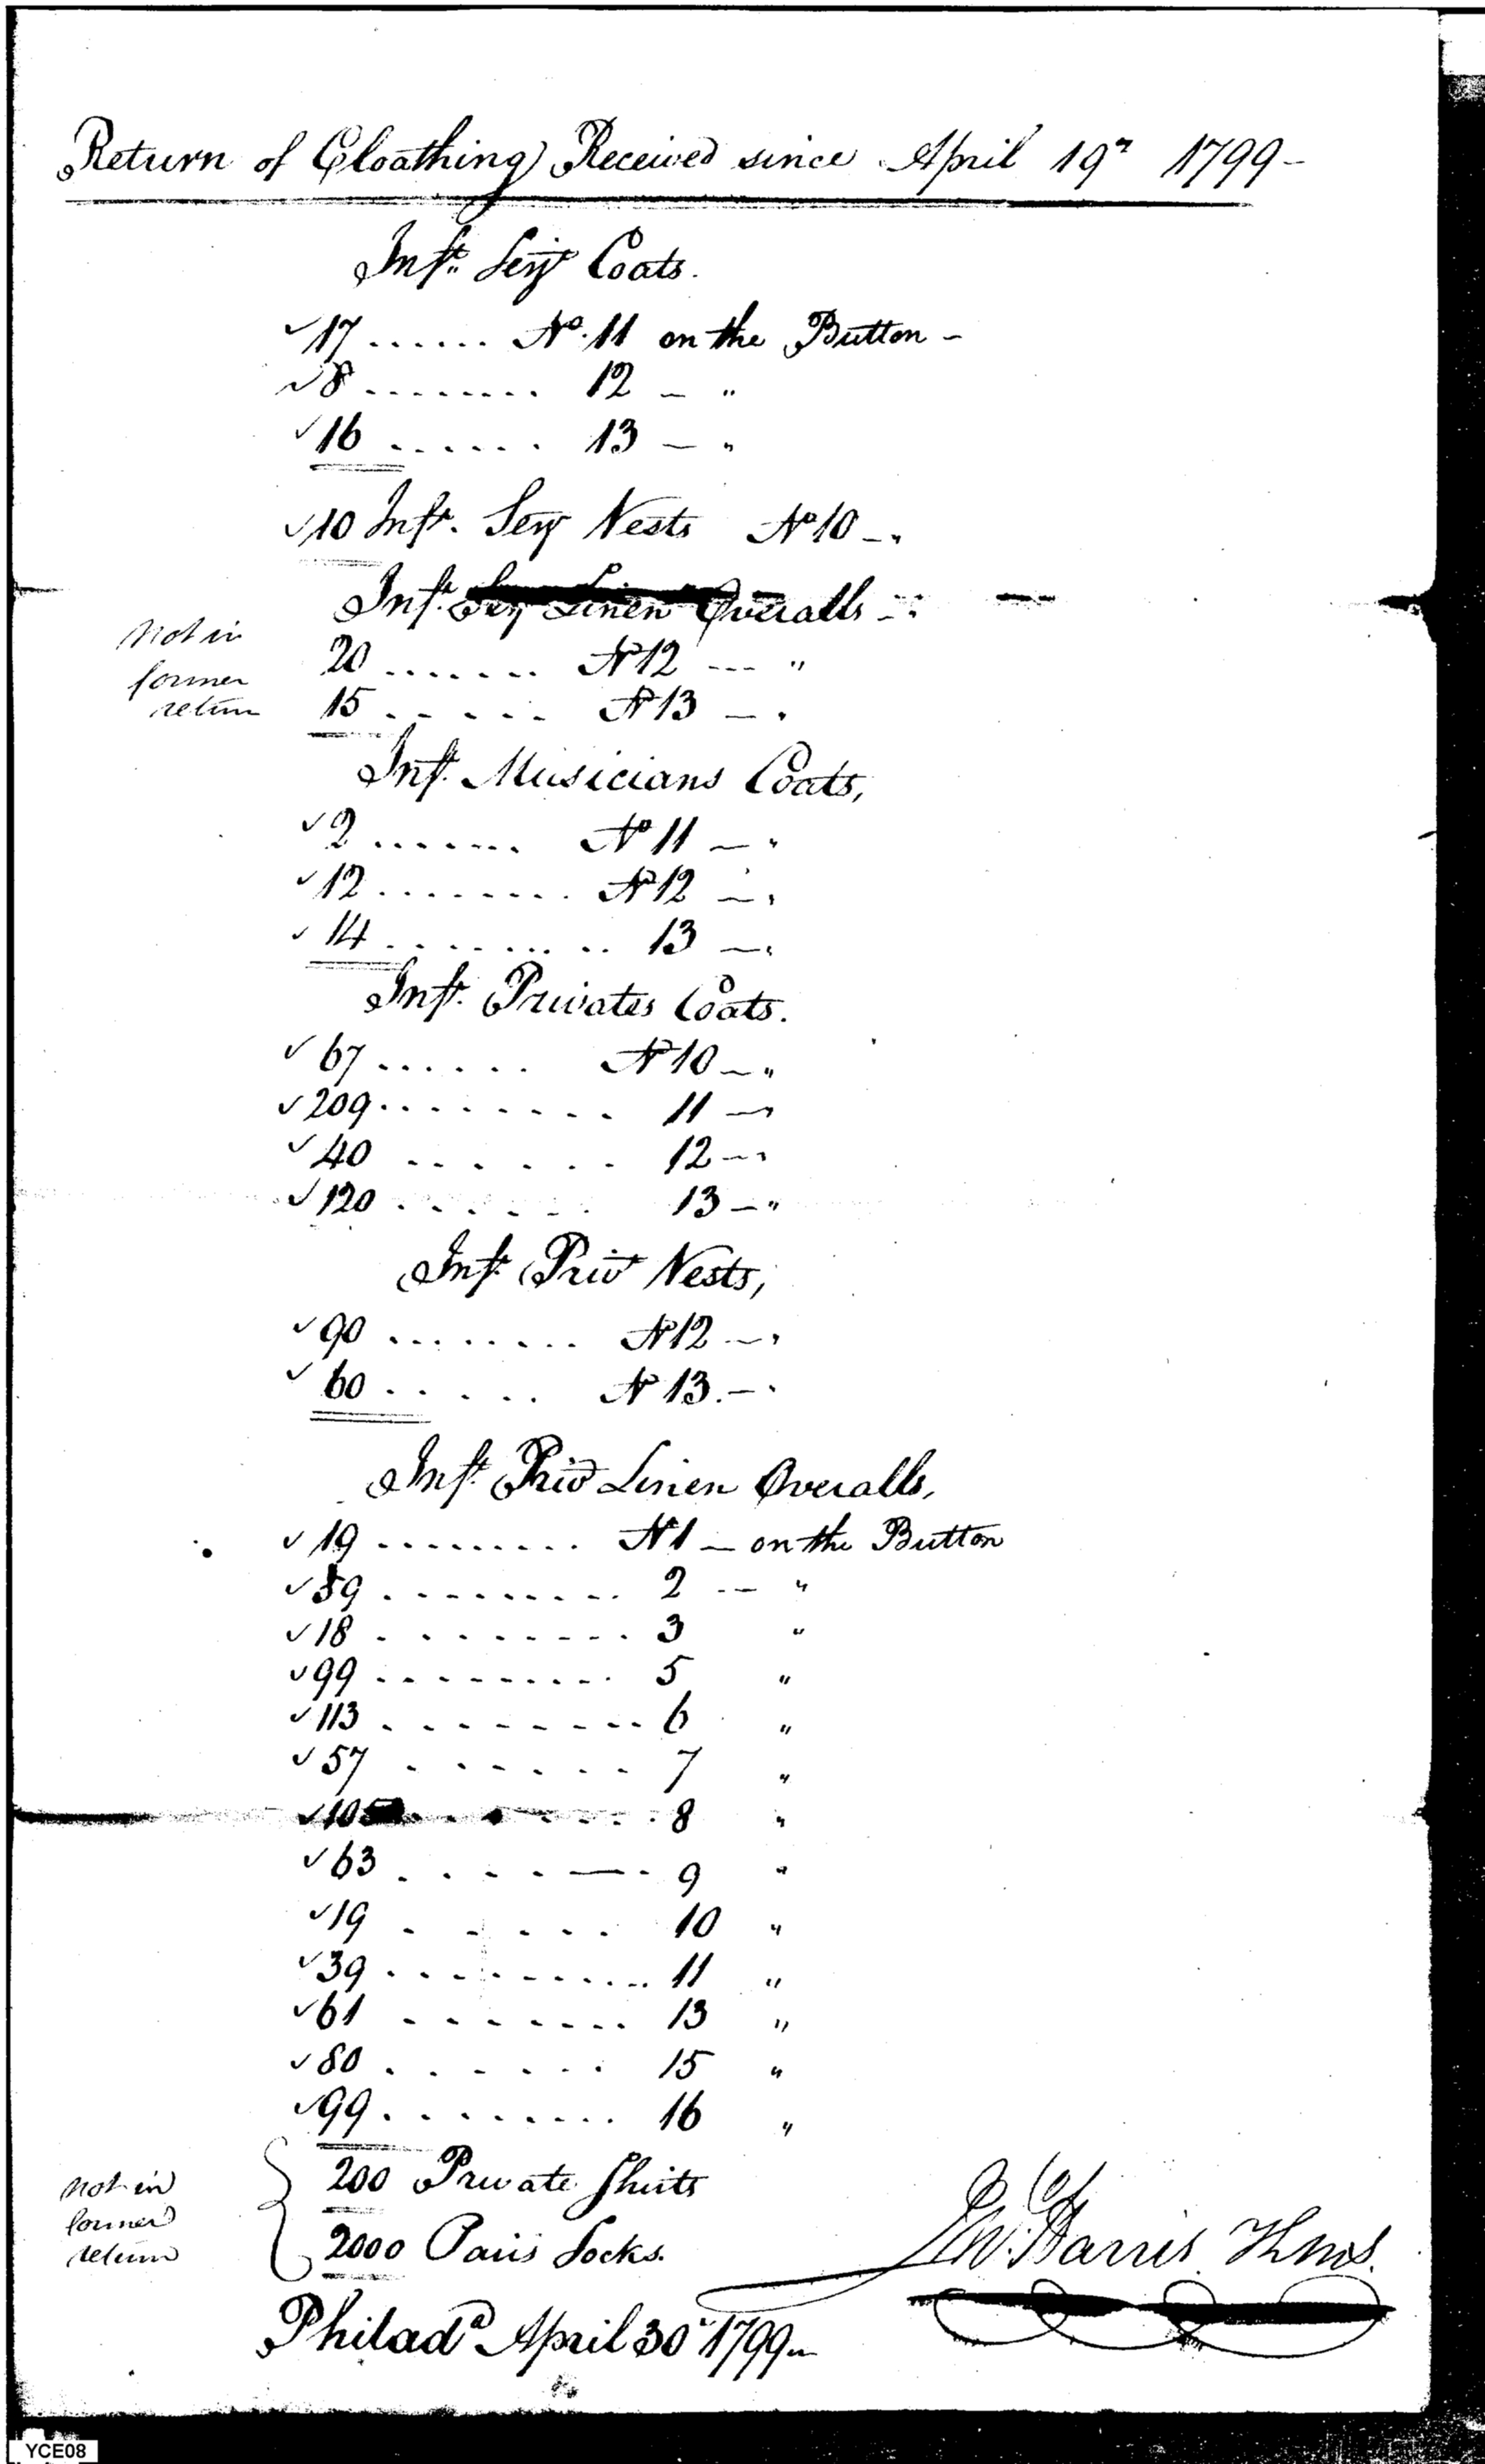 Return of Cloathing Received since April 19th 1799-
Inft. Serjt Coats.
✓17 ...... No. 11 on the Button -
✓8 ........ 12 - "
✓16 ...... 13 - "
✓10 Inft. Serj Vests No 10 - "
Inft. Serj Linen Overalls - "
Not in former return
20 ....... No 12 --- "
15 ..... No 13 - "
Inft. Musicians Coats,
✓2 ....... No 11 - "
✓12 ........ No 12 - "
✓14 ........ 13 - "
Inft. Privates Coats.
✓67 ...... No 10 - "
✓209 ........ 11 - "
✓40 ...... 12 - "
✓120 ...... 13 - "
Inft Privt Vests,
✓90 ........ No 12 - "
✓60 ..... No 13. - "
Inft Privt Linen Overalls,
✓19 ......... No 1 - on the Button
✓59 ......... 2 -- "
✓18 ........ 3 "
✓99 ......... 5 "
✓113 ........ 6 "
✓57 ...... 7 "
✓105 ...... 8 "
✓63 ..... 9 "
✓19 ...... 10 "
✓39 ......... 11 "
✓61 ........ 13 "
✓80 ...... 15 "
✓99 ........ 16 "
Not in former return
200 Private Shirts
2000 Pairs Socks.
Jno. Harris
Philada April 30th 1799-
YCE08